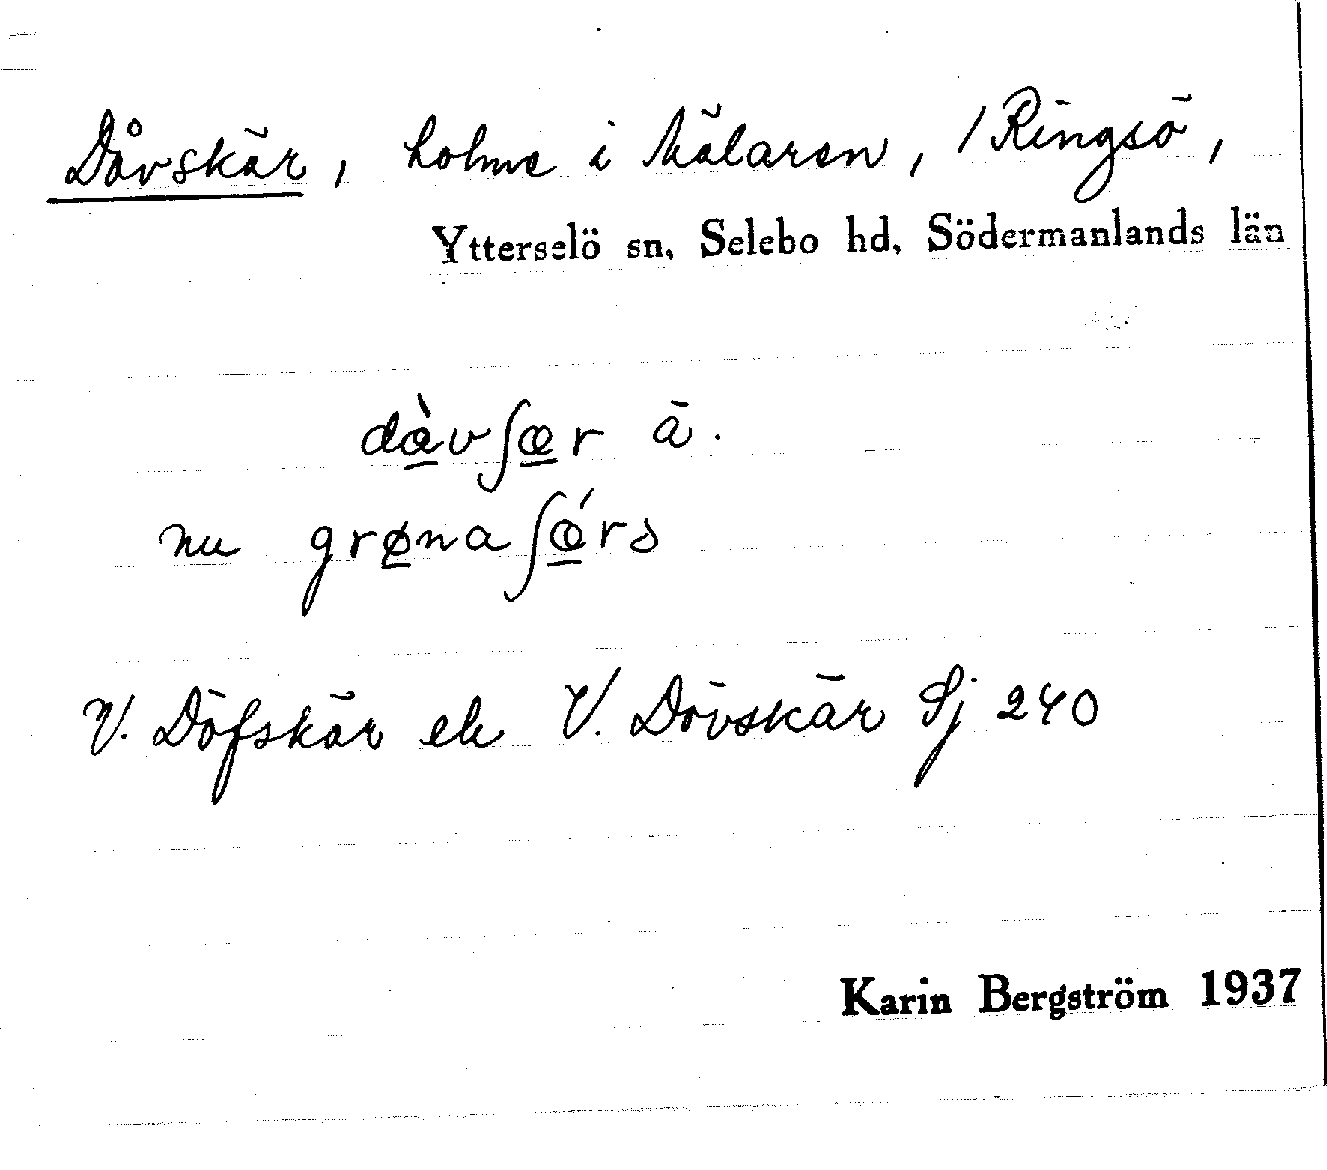 Dåvskär, holme i Mälaren, / Ringsö,
Ytterselö sn, Selebo hd, Södermanlands län
dàvʃær ä.
nu grønaʃǽrs
V. Döfskär el. V. Dövskär Sj 240
Karin Bergström 1937